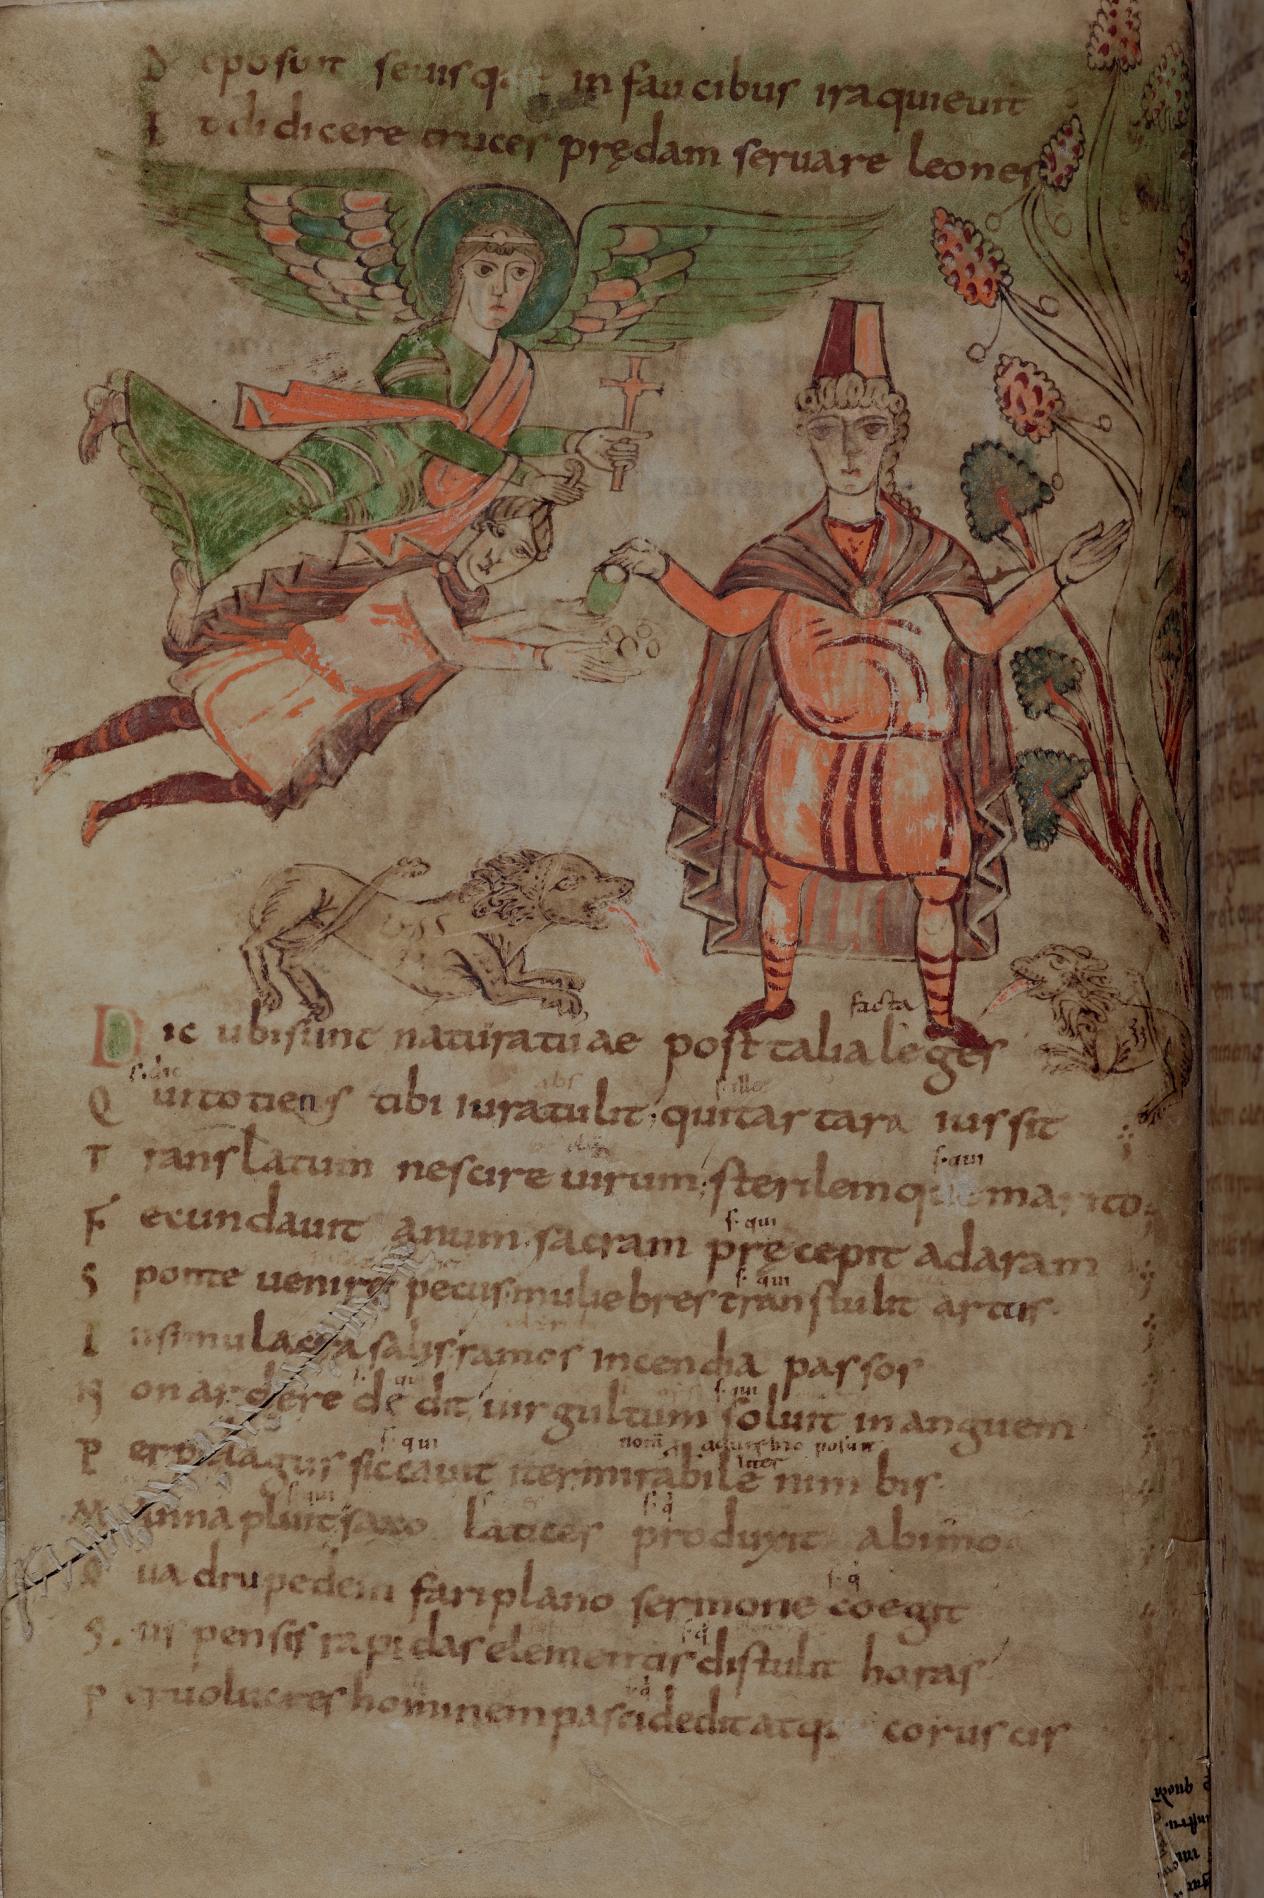 Deposuit seuisque in faucibus ira quieuit
Et didicere truces prędam seruare leones
facta
Dic ubi sunt natura tuae post talia leges
s. dic abs s. ille
Qui totiens tibi iura tulit; qui tartara iussit
s. qui
Translatum nescire uirum; sterilemque marito
s. qui
Fecundauit anum sacram pręcepit ad aram
s. qui
Sponte uenire pecus muliebres transtulit artus
In simulacra salis ramos incendia passos
s. qui s. qui
Non ardere dedit uirgultum soluit in anguem
s. qui
Per plagas siccauit iter mirabile nimbis
s. qui s. q
Manna pluit saxo latices produxit ab imo
s. q
Quadrupedem fari plano sermone coegit
s. q
Suspensis rapidas elementis distulit horas
Per uolucres hominem pasci dedit atque coruscis